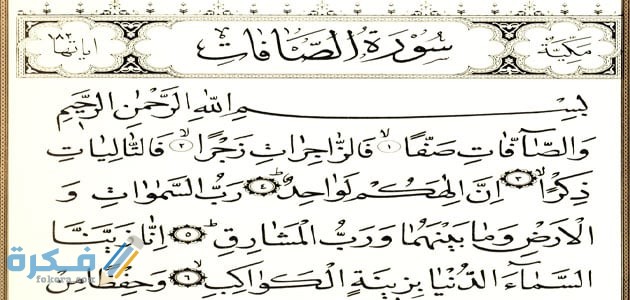 مكية سورة الصافات آياتها ١٨٢
بسم الله الرحمن الرحيم
وَالصَّٓافَّاتِ صَفًّاۙ ١ فَالزَّاجِرَاتِ زَجْرًاۙ ٢ فَالتَّالِيَاتِ
ذِكْرًاۙ ٣ اِنَّ اِلٰهَكُمْ لَوَاحِدٌۜ ٤ رَبُّ السَّمٰوَاتِ وَ
الْاَرْضِ وَمَا بَيْنَهُمَا وَرَبُّ الْمَشَارِقِۜ ٥ اِنَّا زَيَّنَّا
السَّمَٓاءَ الدُّنْيَا بِزِينَةٍۨ الْكَوَاكِبِۙ ٦ وَحِفْظًا مِنْ
فكرة
fokera.com